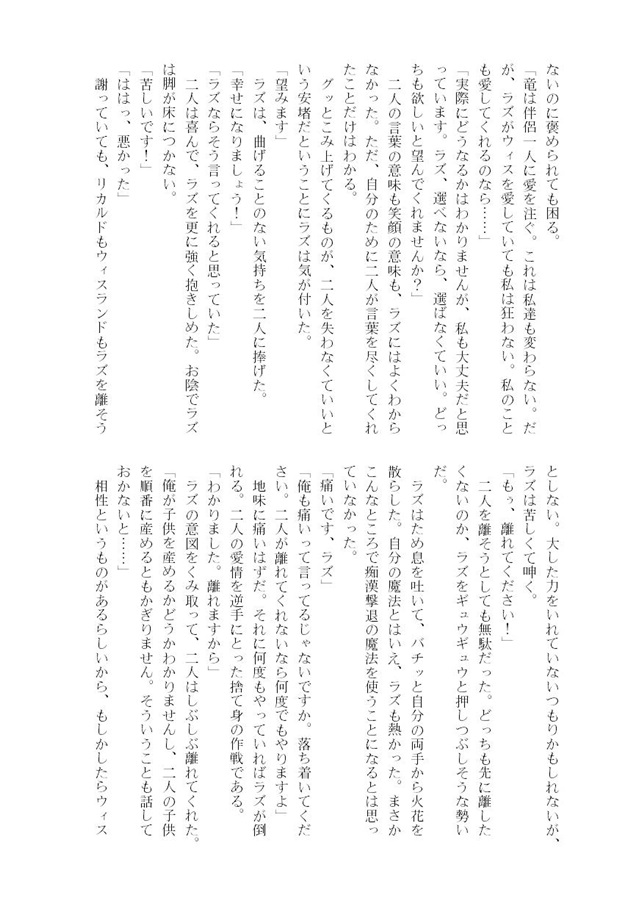 ないのに褒められても困る。
「竜は伴侶一人に愛を注ぐ。これは私達も変わらない。だ
が、ラズがウィスを愛していても私は狂わない。私のこと
も愛してくれるのなら……」
「実際にどうなるかはわかりませんが、私も大丈夫だと思
っています。ラズ、選べないなら、選ばなくていい。どっ
ちも欲しいと望んでくれませんか？」
二人の言葉の意味も笑顔の意味も、ラズにはよくわから
なかった。ただ、自分のために二人が言葉を尽くしてくれ
たことだけはわかる。
グッとこみ上げてくるものが、二人を失わなくていいと
いう安堵だということにラズは気が付いた。
「望みます」
ラズは、曲げることのない気持ちを二人に捧げた。
「幸せになりましょう！」
「ラズならそう言ってくれると思っていた」
二人は喜んで、ラズを更に強く抱きしめた。お陰でラズ
は脚が床につかない。
「苦しいです！」
「ははっ、悪かった」
謝っていても、リカルドもウィスランドもラズを離そう
としない。大した力をいれていないつもりかもしれないが、
ラズは苦しくて呻く。
「もぅ、離れてください！」
二人を離そうとしても無駄だった。どっちも先に離した
くないのか、ラズをギュウギュウと押しつぶしそうな勢い
だ。
ラズはため息を吐いて、バチッと自分の両手から火花を
散らした。自分の魔法とはいえ、ラズも熱かった。まさか
こんなところで痴漢撃退の魔法を使うことになるとは思っ
ていなかった。
「痛いです、ラズ」
「俺も痛いって言ってるじゃないですか。落ち着いてくだ
さい。二人が離れてくれないなら何度でもやりますよ」
地味に痛いはずだ。それに何度もやっていればラズが倒
れる。二人の愛情を逆手にとった捨て身の作戦である。
「わかりました。離れますから」
ラズの意図をくみ取って、二人はしぶしぶ離れてくれた。
「俺が子供を産めるかどうかわかりませんし、二人の子供
を順番に産めるともかぎりません。そういうことも話して
おかないと……」
相性というものがあるらしいから、もしかしたらウィス